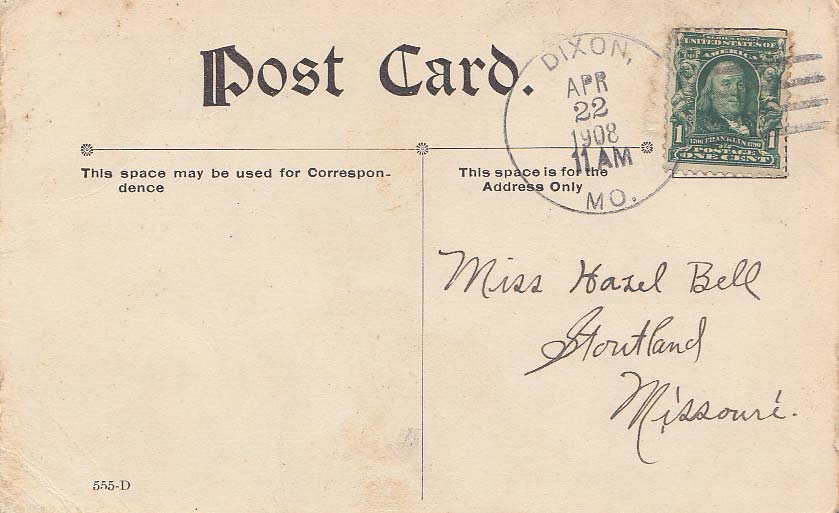 Post Card.
DIXON,
APR
22
1908
11 AM
MO.
SERIES 1902
UNITED STATES OF
AMERICA
1 1706 FRANKLIN 1790 1
POSTAGE
ONE CENT
This space may be used for Correspon-
dence
This space is for the
Address Only
Miss Hazel Bell
Stoutland
Missouri.
555-D